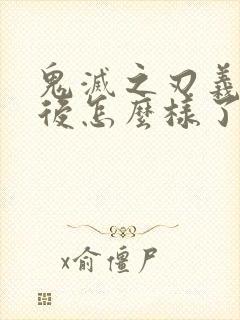 鬼滅之刃義
後怎麼樣了
x俞僵尸